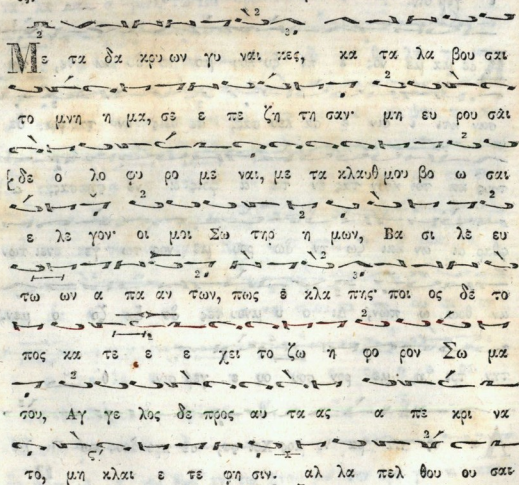 Με τα δα κρυ ων γυ ναι κες, κα τα λα βου σαι
το μνη η μα, σε ε πε ζη τη σαν· μη ευ ρου σαι
δε ο λο φυ ρο με ναι, με τα κλαυθ μου βο ω σαι
ε λε γον· οι μοι Σω τηρ η μων, Βα σι λευ ευ
τω ων α πα αν των, πως ε κλα πης· ποι ος δε το
πος κα τε ε ε χει το ζω η φο ρον Σω μα
σου, Αγ γε λος δε προς αυ τα ας α πε κρι να
το, μη κλαι ε τε φη σιν. αλ λα πελ θου ου σαι